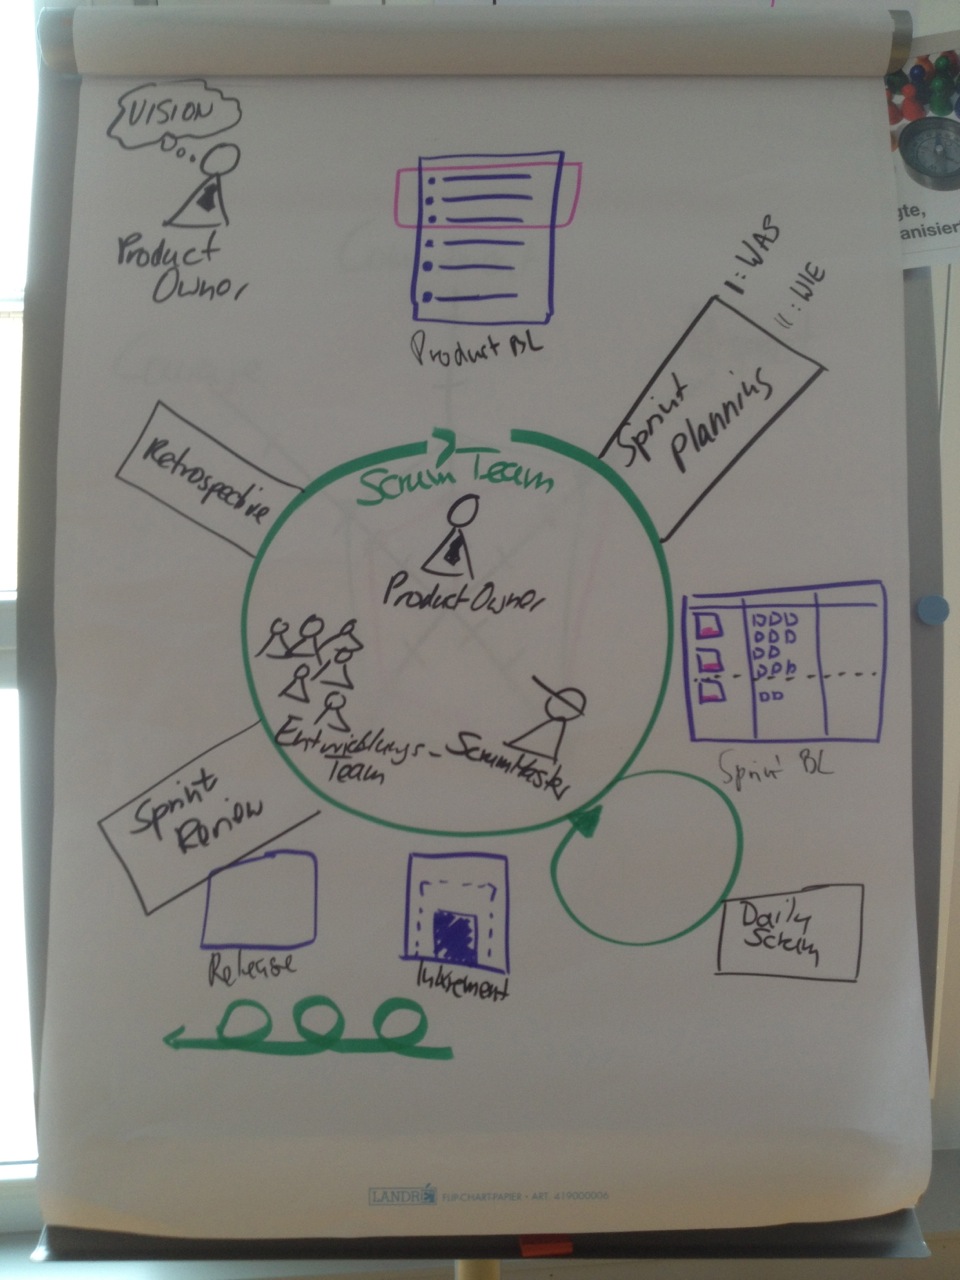 VISION
Product
Owner
Product BL
I: WAS
II: WIE
Sprint
planning
Retrospective
Scrum Team
Product Owner
Entwicklungs-
Team
ScrumMaster
Sprint BL
Sprint
Review
Daily
Scrum
Release
Inkrement
LANDRÉ FLIPCHARTPAPIER • ART. 419000006
gte,
anisier